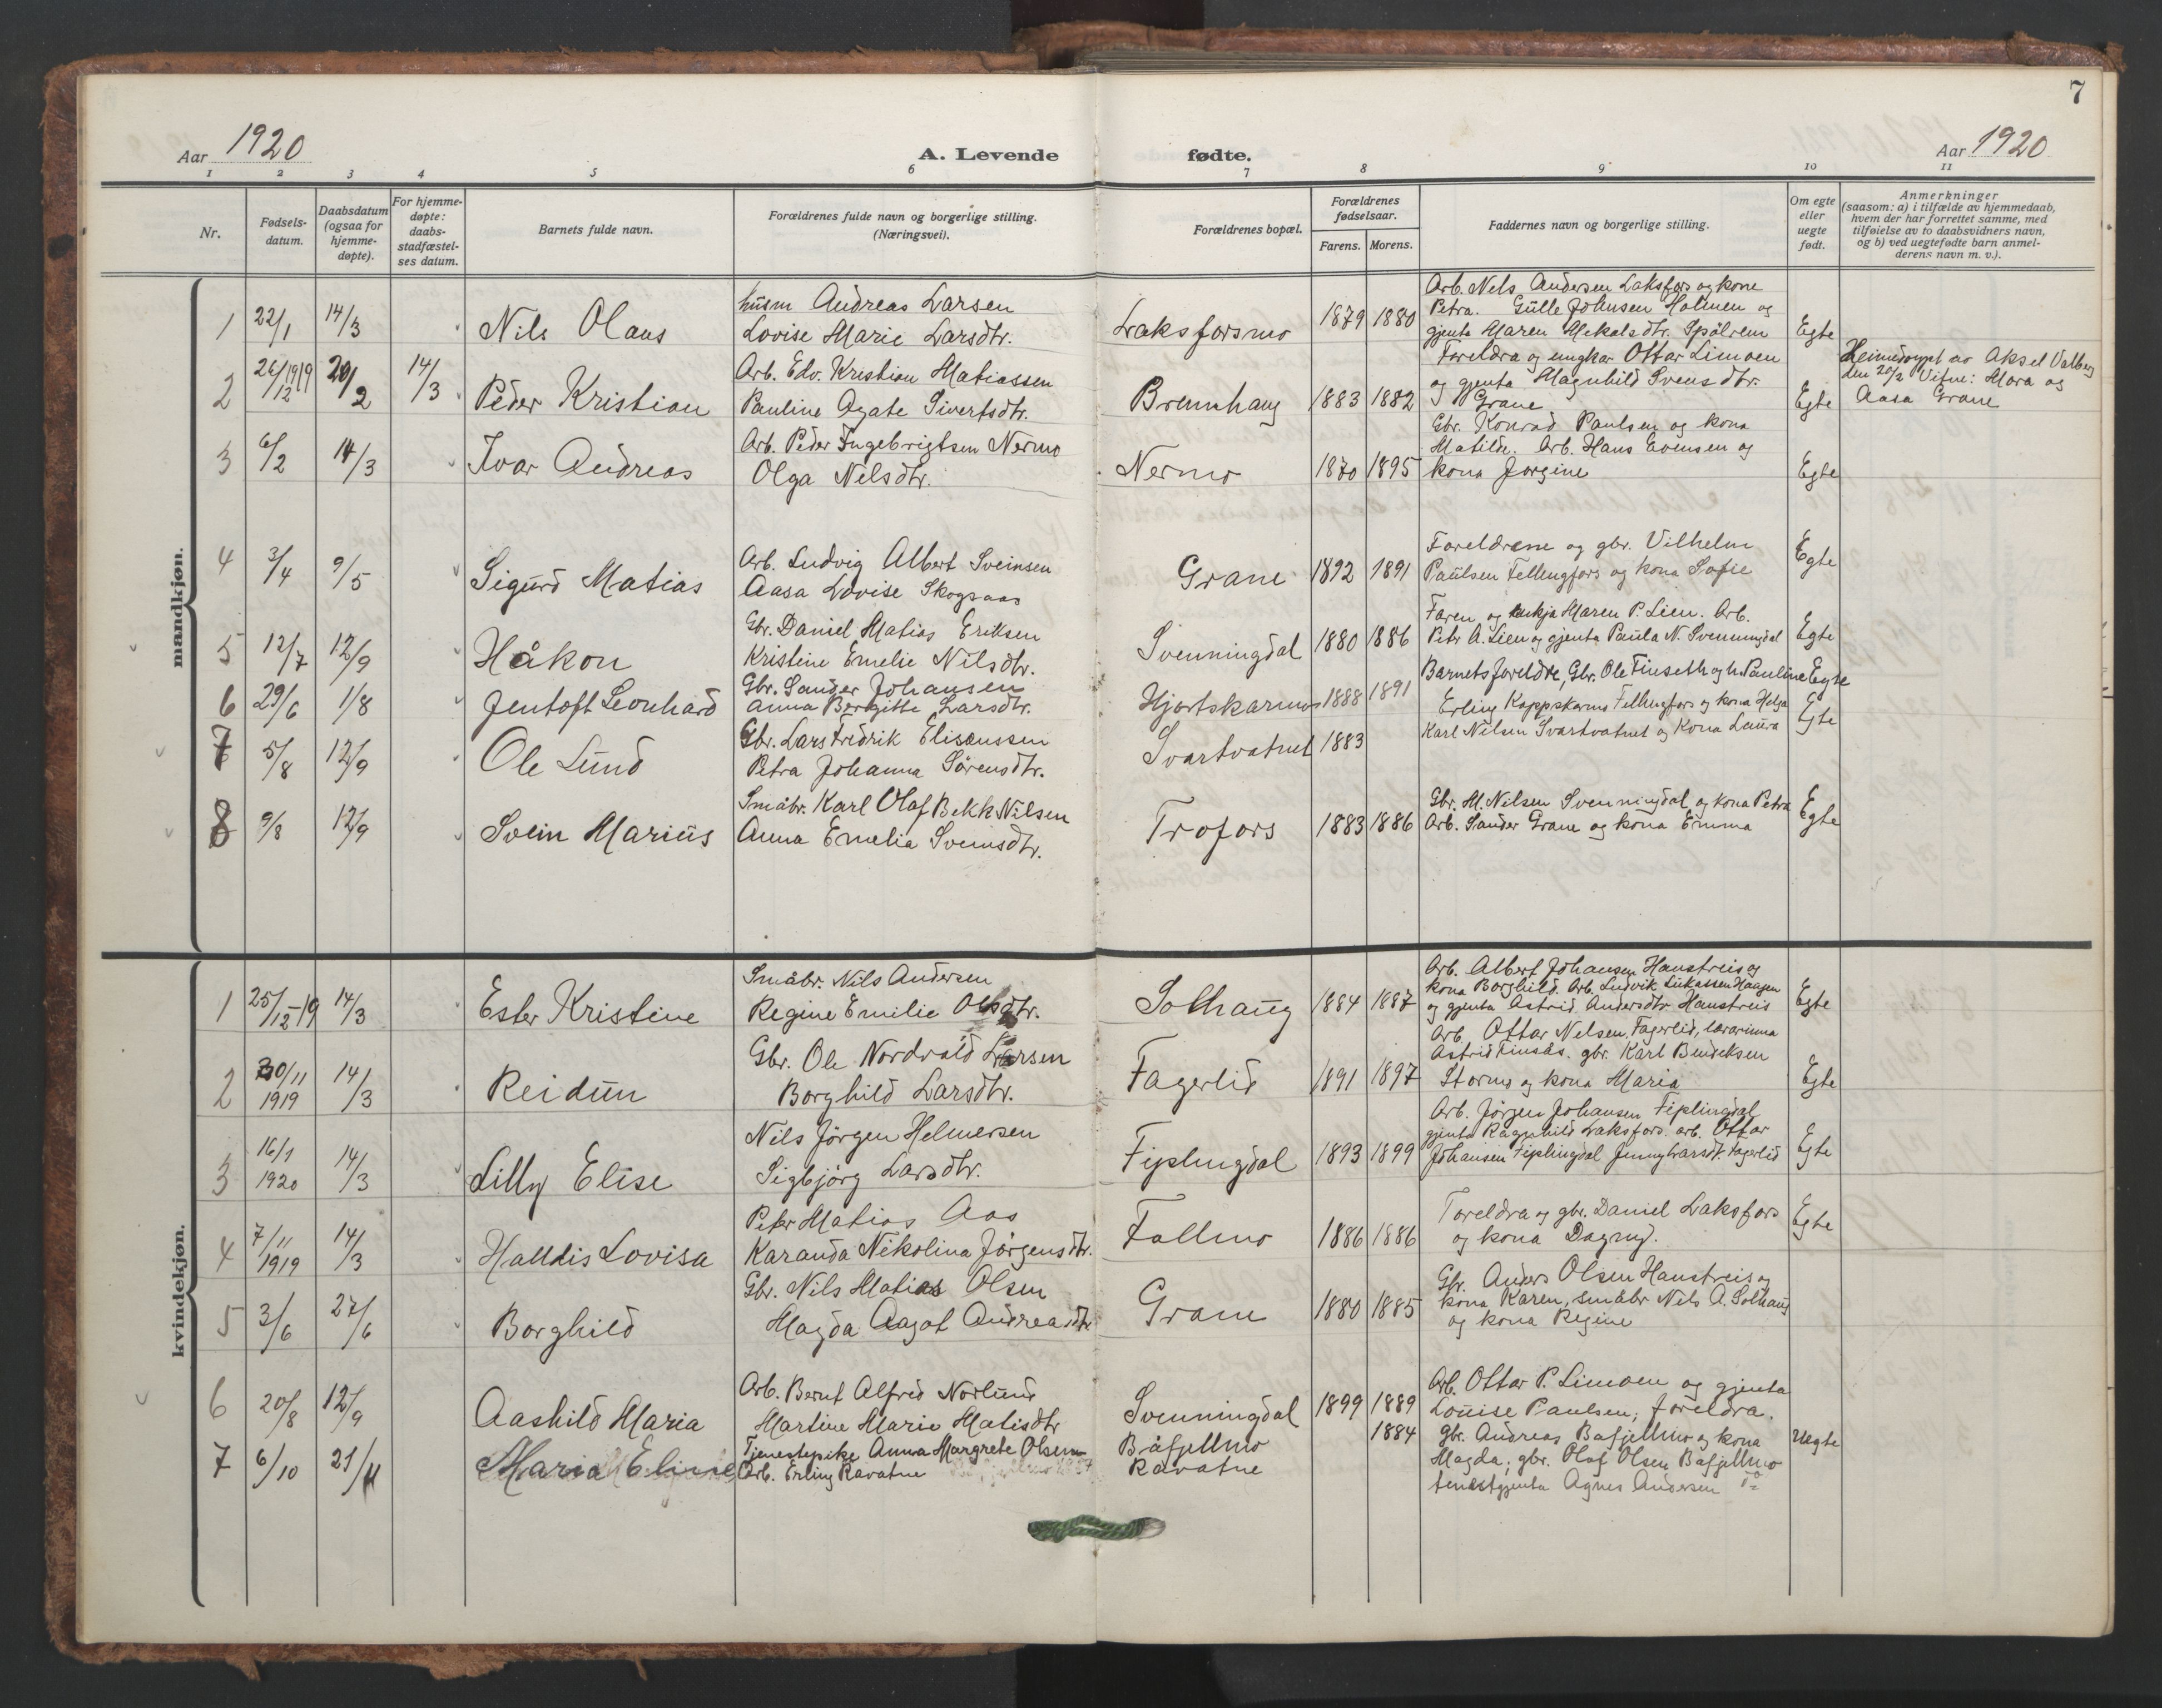 7
Aar 1920
A. Levende fødte.
Aar 1920
1 2 3 4 5 6 7 8 9 10 11
Nr.
Fødsels-
datum.
Daabsdatum
(ogsaa for
hjemme-
døpte).
For hjemme-
døpte:
daabs-
stadfæstel-
ses datum.
Barnets fulde navn.
Forældrenes fulde navn og borgerlige stilling.
(Næringsvei).
Forældrenes bopæl.
Forældrenes
fødselsaar.
Farens. Morens.
Faddernes navn og borgerlige stilling.
Om egte
eller
uegte
født.
Anmerkninger
(saasom: a) i tilfælde av hjemmedaab,
hvem der har forrettet samme, med
tilføielse av to daabsvidners navn,
og b) ved uegtefødte barn anmel-
derens navn m. v.).
mandkjøn.
1 22/1 14/3 Nils Olaus
husm Andreas Larsen
Lovise Marie Larsdtr.
Laksforsmo 1879 1880
Arb. Nels Andersen Laksfors og kone
Petra. Gulle Johnsen Holmen og
gjenta Maren Mekalsdtr. Spølrem
Egte
2 26/12 1919 20/2 14/3 Peder Kristian
Arb. Edv. Kristian Matiassen
Pauline Agate Sivertsdtr.
Bremhaug 1883 1882
Foreldra og ungkar Ottar Limoen
og gjenta Magnhild Svensdtr.
Grane
Egte
Heimedøypt av Aksel Valberg
den 20/2 Vitne: Mara og
Aasa Grane
3 6/2 14/3 Ivar Andreas
Arb. Peder Ingebrigtsen Nermo
Olga Nelsdtr.
Nermo 1870 1895
Gbr. Konrad Paulsen og kona
Matilde. Arb. Hans Evensen og
kona Jorgine
Egte
4 3/4 9/5 Sigurd Matias
Arb. Ludvig Albert Sveinsen
Aasa Lovise Skogsaas
Grane 1892 1891
Foreldrene og gbr. Vilhelm
Paulsen Fellingfors og kona Sofie
Egte
5 12/7 12/9 Håkon
Gbr. Daniel Matias Eriksen
Kristine Emelie Nilsdtr.
Svenningdal 1880 1886
Faren og enkja Maren P. Lien. Arb.
Petr A. Lien og gjenta Paula N. Svenningdal
Egte
6 29/6 1/8 Jentoft Leonhard
Gbr. Sander Johansen
Anna Bergitte Larsdtr.
Hjortskarmo 1888 1891
Barnets foreldre, Gbr. Ole Finseth og h. Pauline
Egte
7 5/8 12/9 Ole Lund
Gbr. Lars Fredrik Elisenssen
Petra Johanna Sørensdtr.
Svartvatnet 1883
Erling Kappskarmo Fellingfors og kona Helga
Karl Nilsen Svartvatnet og Kona Laura
Egte
8 9/8 12/9 Svein Marius
Småbr. Karl Olaf Bekk Nilsen
Anna Emelia Sveinsdtr.
Trofors 1883 1886
Gbr. M. Nilsen Svenningdal og kona Petra
Arb. Sander Grane og kona Emma
Egte
kvindekjøn.
1 25/12-19 14/3 Ester Kristine
Småbr. Nils Andersen
Regine Emilie Olsdtr.
Solhaug 1884 1887
Arb. Albert Johansen Haustreis og
kona Borghild. Arb. Ludvik Lukassen Haagen
og gjenta Astrid Andersdtr Haustreis
Egte
2 30/11 1919 14/3 Reidun
Gbr. Ole Nordvald Larsen
Borghild Larsdtr.
Fagerlid 1891 1897
Arb. Ottar Nelsen, Fagerlid, lærarinna
Astrid Finsås. gbr. Karl Bendeksen
Stormo og kona Maria
Egte
3 16/1 1920 14/3 Lilly Elise
Nils Jörgen Helmersen
Sigbjörg Larsdtr.
Fiplingdal 1893 1899
Arb. Jörgen Johansen Fiplingdal,
gjenta Ragnhild Laksfors. arb. Ottar
Johansen Fiplingdal Jenny Larsdt. Fagerlid
Egte
4 7/11 1919 14/3 Halldis Lovisa
Peter Matias Aas
Karanda Nikolina Jörgensdtr.
Fallmo 1886 1886
Foreldra og gbr. Daniel Laksfors
og kona Dagny.
Egte
5 3/6 27/6 Borghild
Gbr. Nils Matias Olsen
Magda Aagot Andreasdtr
Grane 1880 1885
Gbr. Anders Olsen Haustreis og
kona Karen, småbr Nels A. Solhaug
og kona Regine
6 20/8 12/9 Aashild Maria
Arb. Bernt Alfred Norlund
Martine Marie Matisdtr
Svenningdal 1899 1889
Arb. Ottar P. Limoen og gjenta
Louise Paulsen; foreldra.
7 6/10 21/11 Maria Eline
Tjenestepike Anna Margrete Olsen
Arb. Erling Ravatne
Båfjellmo
Ravatne
1884
gbr. Andreas Bafjellmo og kona
Magda; gbr. Olaf Olsen Bafjellmo
tenestgjenta Agnes Andersen do
Uegte